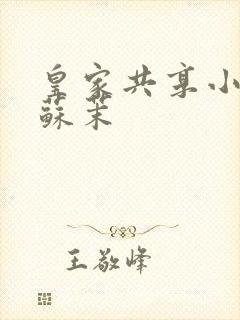 皇家共享小
蘇茉
王敬峰